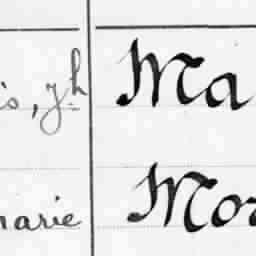 is, Jh Ma
marie Mor